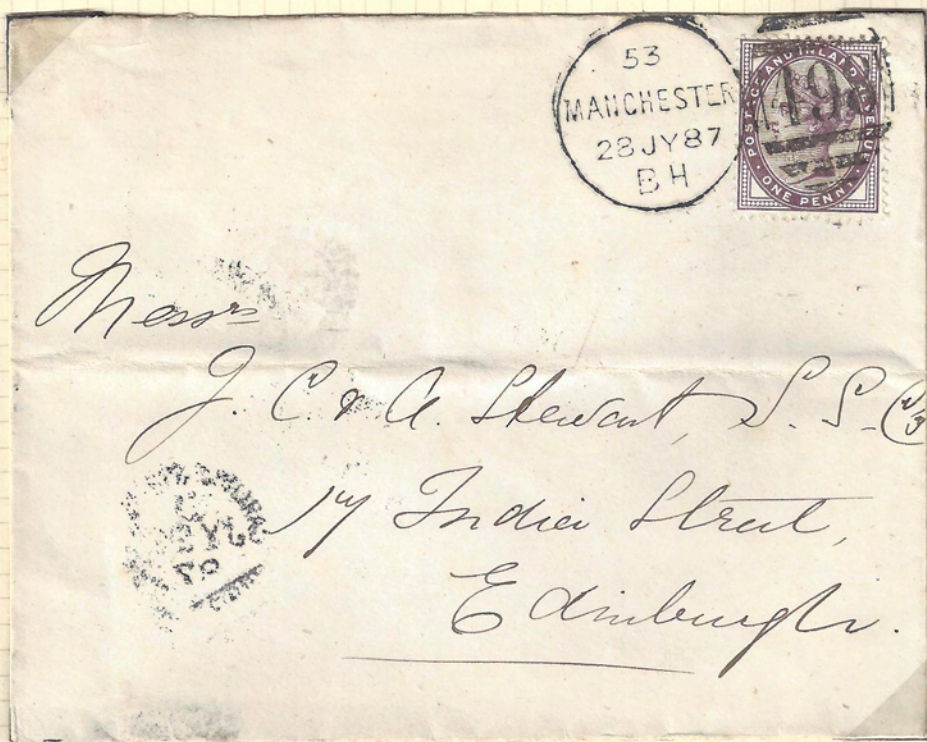 53
MANCHESTER
28 JY 87
BH
POSTAGE AND INLAND REVENUE
ONE PENNY
Messrs
J. C & A. Stewart, S. S. Cs
17 India Street,
Edinburgh.